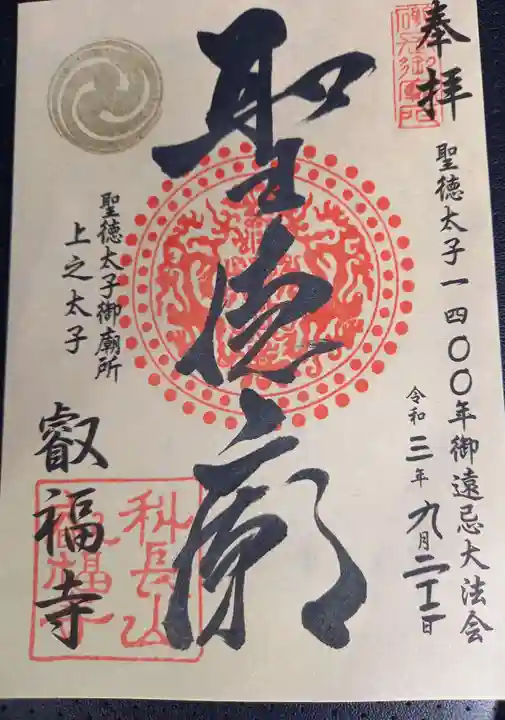 奉拝
聖徳太子一四〇〇年御遠忌大法会
令和三年九月二十二日
聖徳廟
聖徳太子御廟所
上之太子
叡福寺
科長山
叡福寺